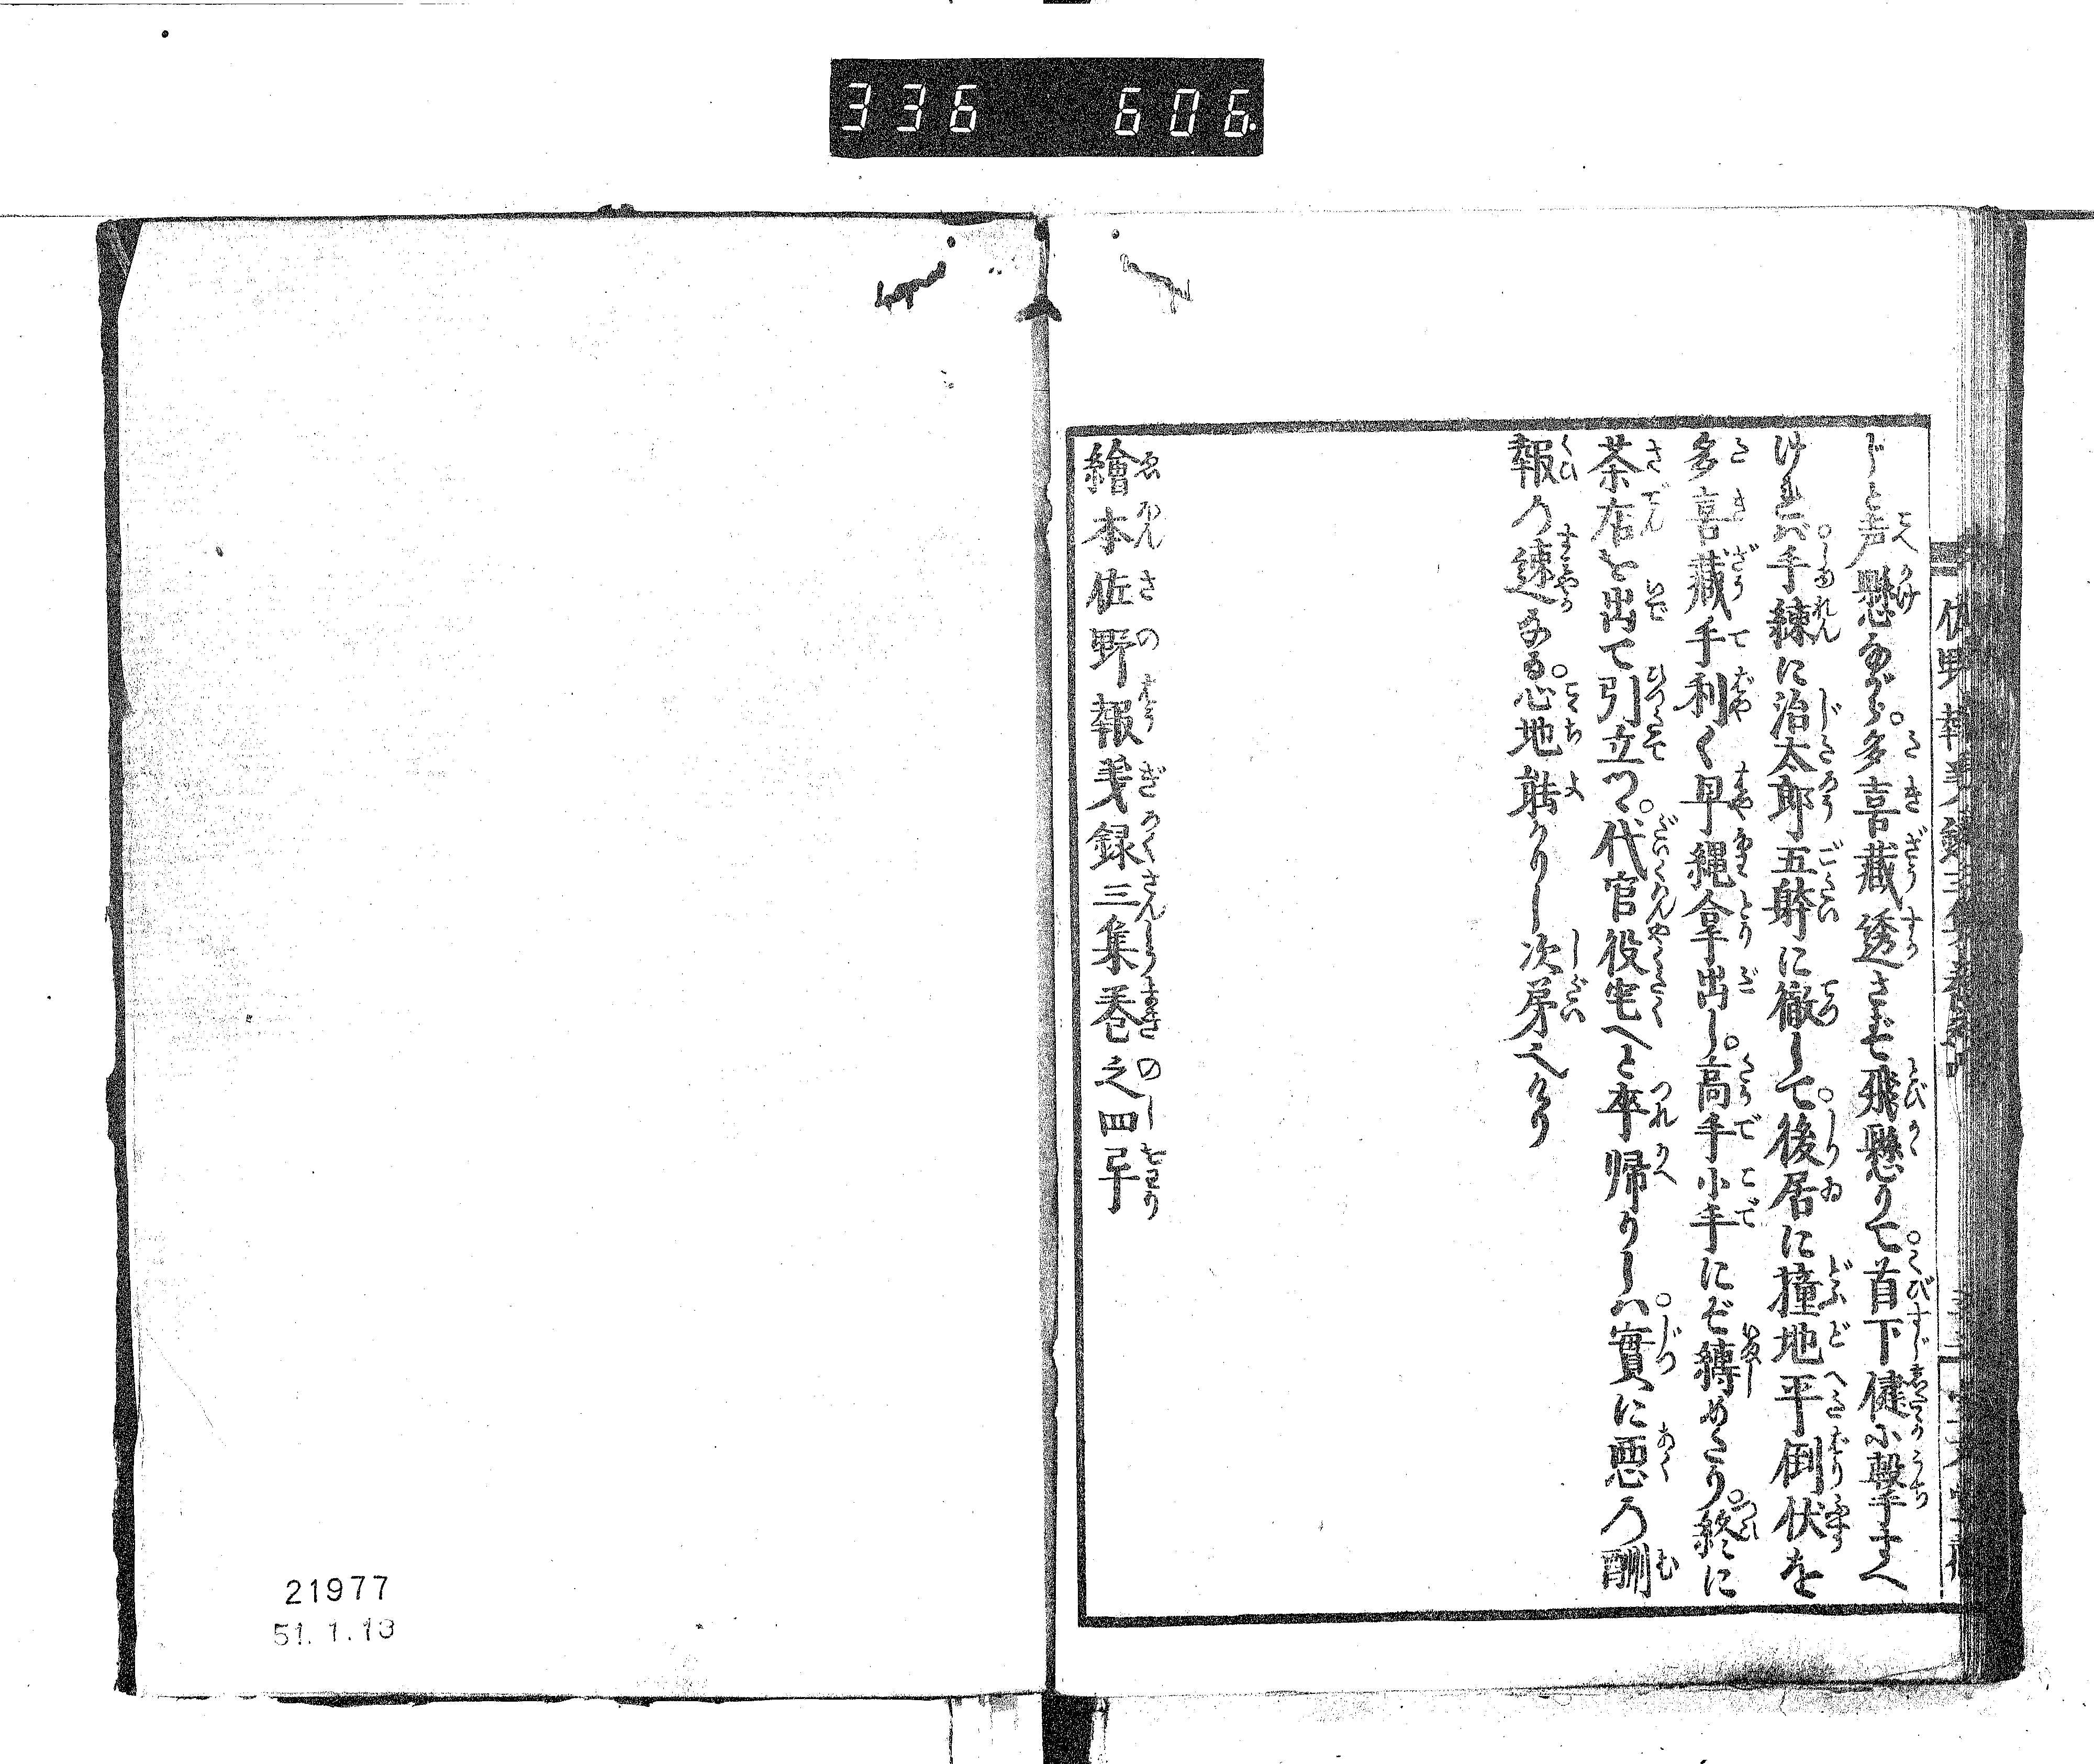 336 606
じと声懸ながら。多喜藏透さず飛懸りて。首下健に撃すへ
ければ。手練に治太郎五躰に徹して。後居に撞地平倒伏を
多喜藏手利く早縄拿出し。高手小手にぞ縛めたり。終に
茶店を出て引立つゝ。代官役宅へと卒帰りしハ。實に悪の酬
報の速なる。心地能かりし次第也けり
繪本佐野報義録三集巻之四終
佐野報義録三集
21977
51.1.13